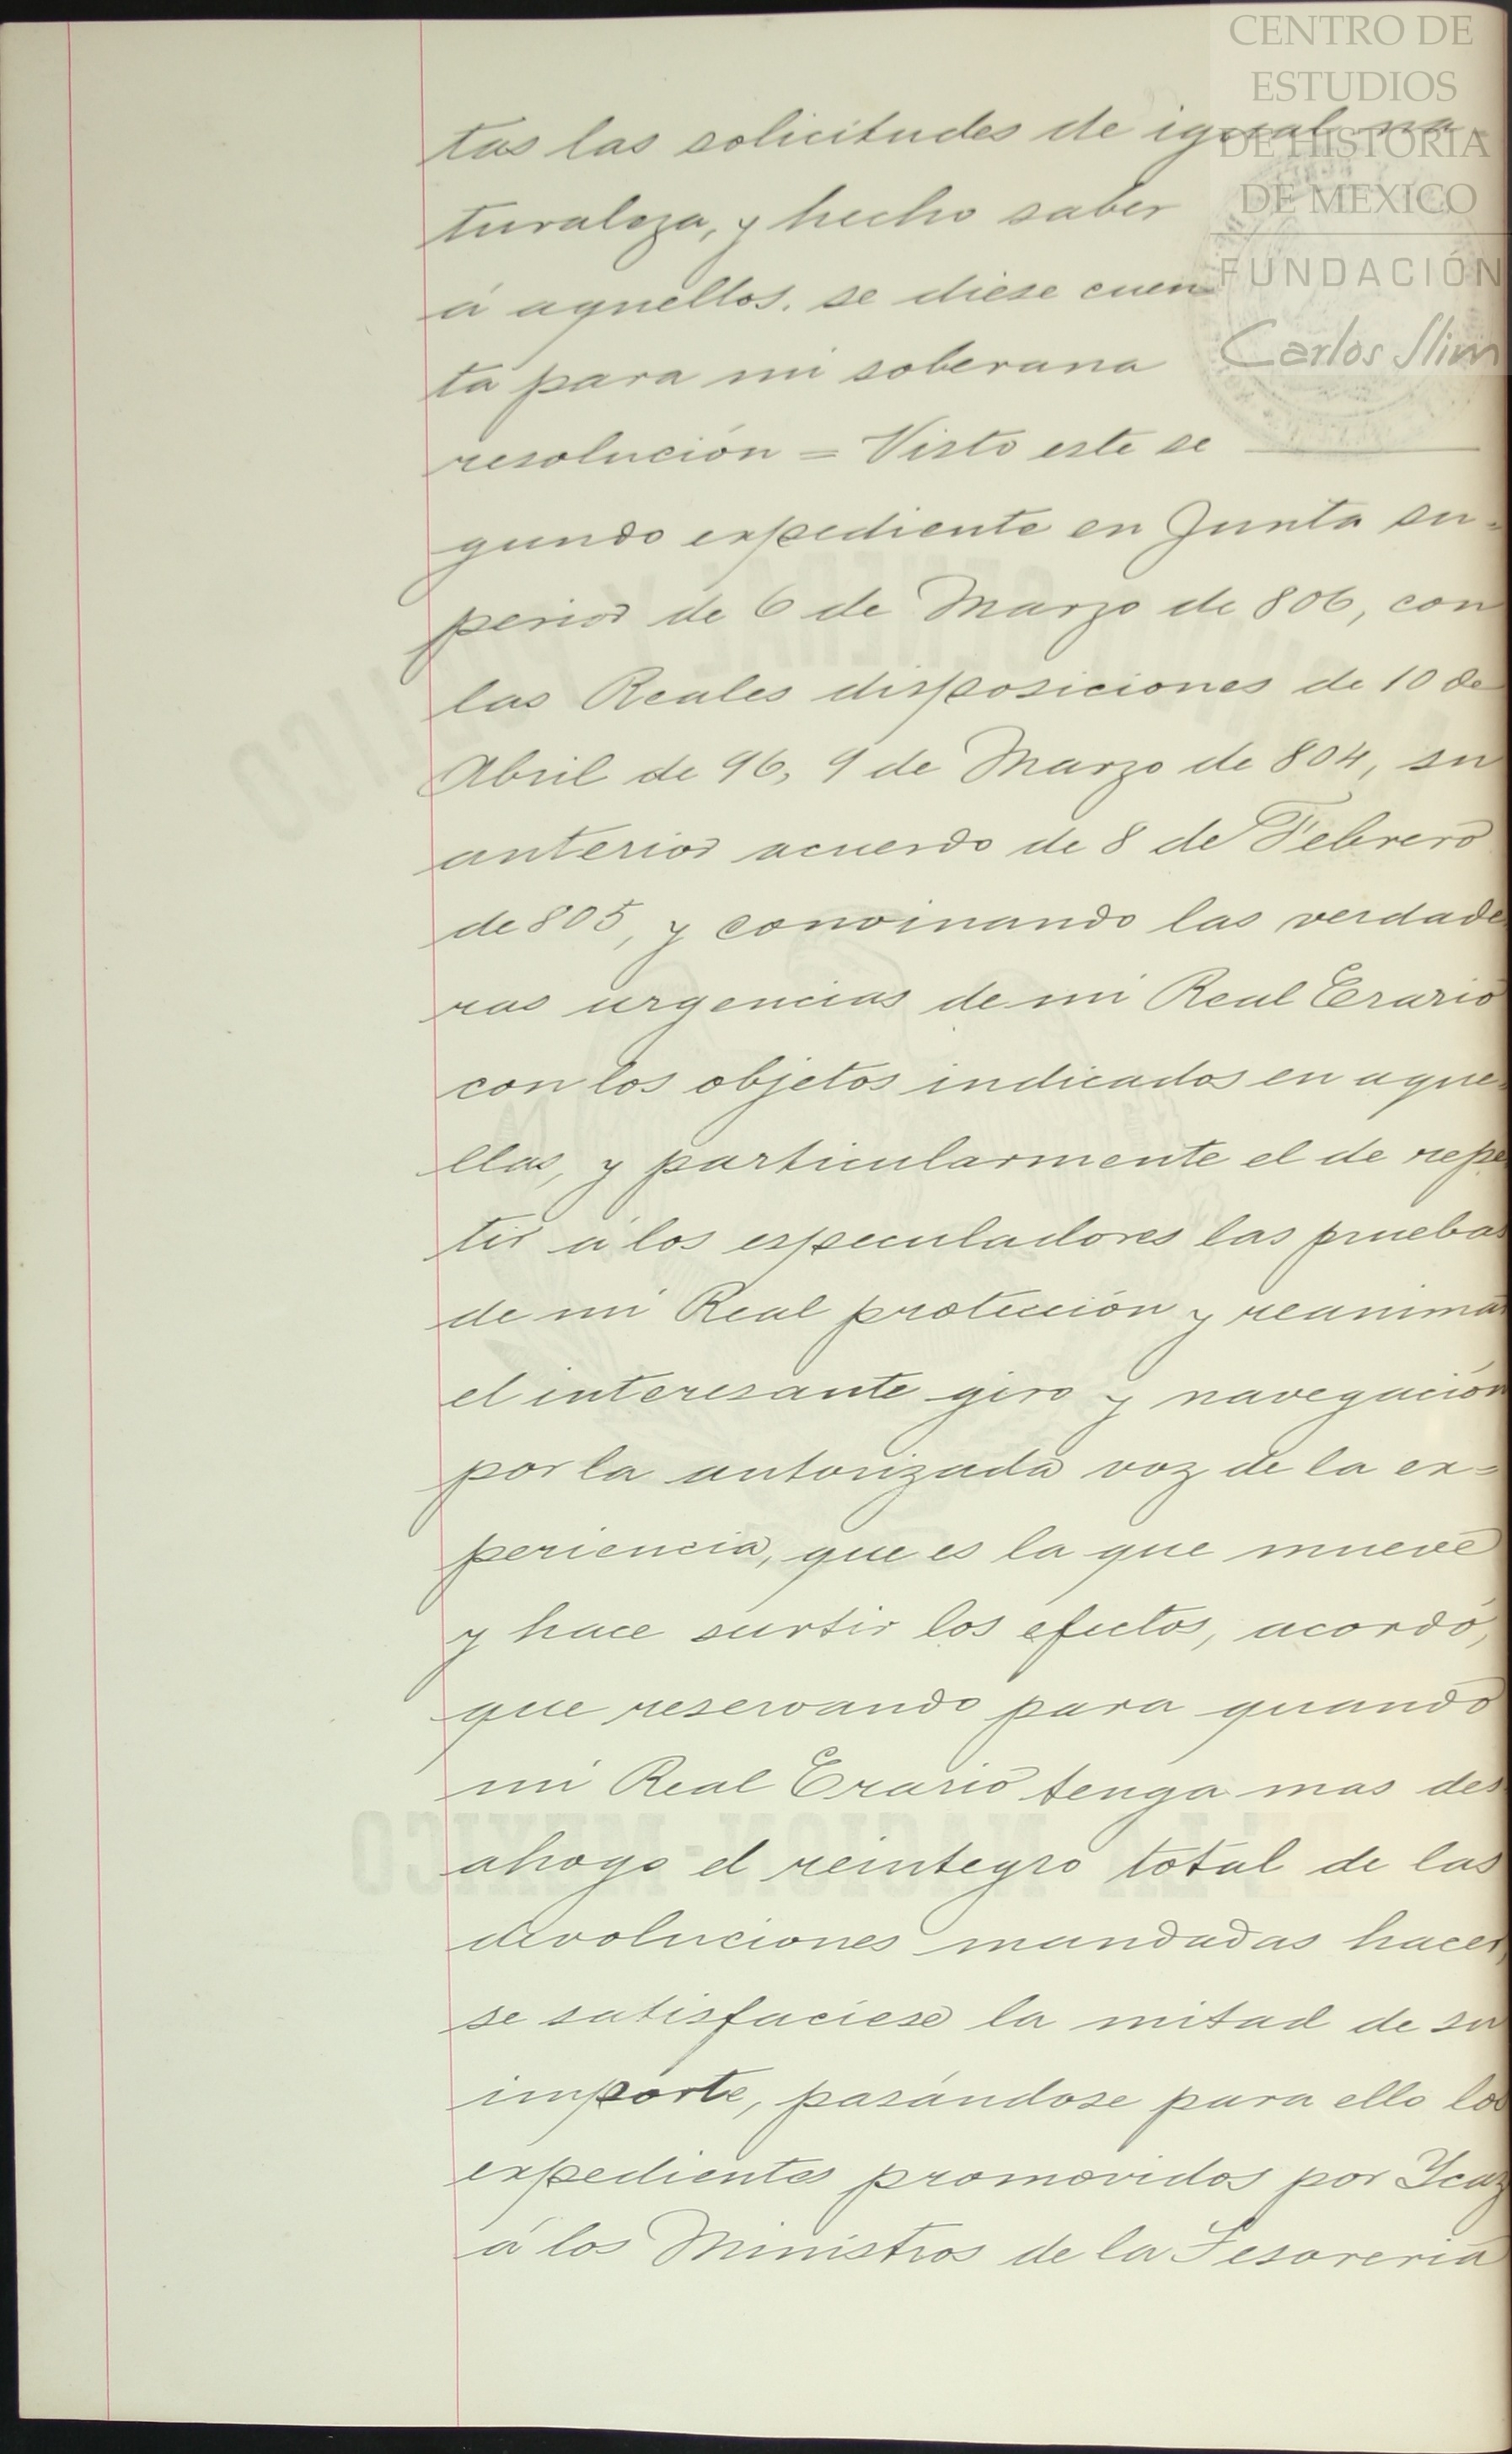 CENTRO DE
ESTUDIOS
DE HISTORIA
DE MEXICO
FUNDACIÓN
Carlos Slim
tas las solicitudes de igual na
turaleza, y hecho saber
á aquellos. se diese cuen
ta para mi soberana
resolución = Visto este se
gundo expediente en Junta su-
perior de 6 de Marzo de 806, con
las Reales disposiciones de 10 de
Abril de 96, 9 de Marzo de 804, su
anterior acuerdo de 8 de Febrero
de 805, y convinando las verdade
ras urgencias de mi Real Erario
con los objetos indicados en aque-
llas, y particularmente el de repe
tir á los especuladores las pruebas
de mi Real protección y reanimar
el interesante giro y navegación
por la autorizada voz de la ex=
periencia, que es la que mueve
y hace surtir los efectos, acordó,
que reservando para quando
mi Real Erario tenga mas des
ahogo el reintegro total de las
devoluciones mandadas hacer,
se satisfaciese la mitad de su
importe, pasándose para ello los
expedientes promovidos por Icaz
á los Ministros de la Tesoreria